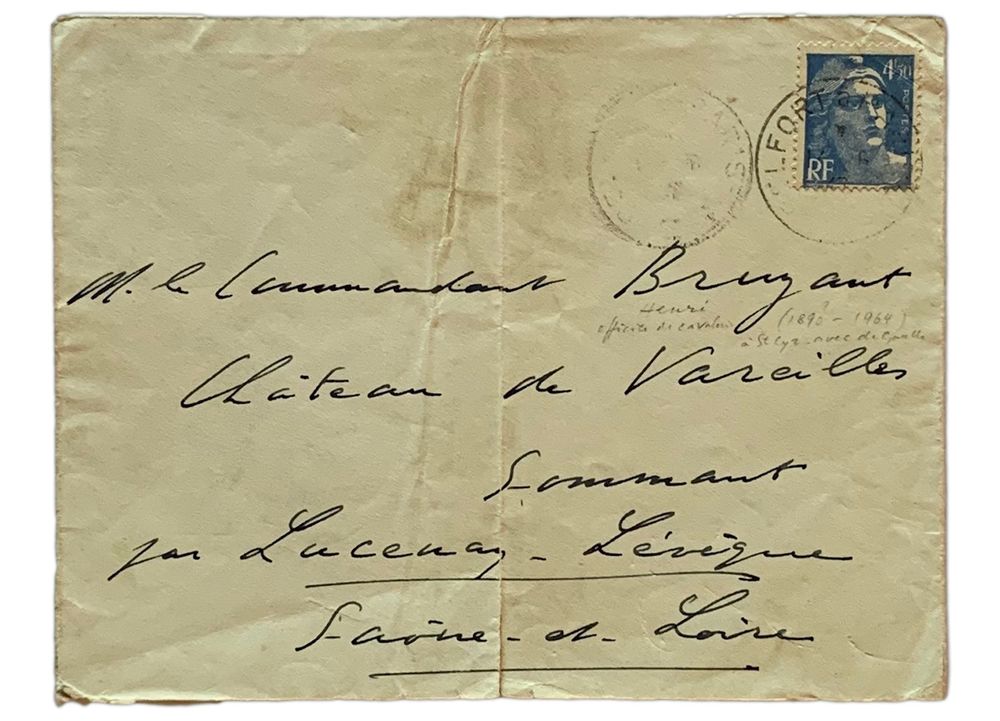 4F50
POSTES
RF
PARIS
M. le Commandant Bruzant
Henri
officier de cavalerie
(1890? - 1964)
à St Cyr avec de Gaulle
Château de Vareilles
Sommant
par Lucenay-Lévêque
Saône-et-Loire